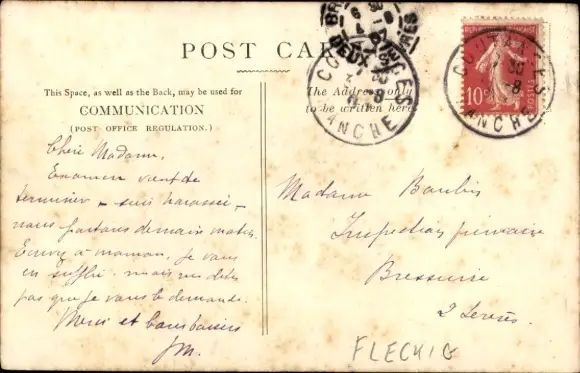 POST CARD
This Space, as well as the Back, may be used for
COMMUNICATION
(POST OFFICE REGULATION.)
The Address only
to be written here
Chère Madame,
Examen vient de
terminer – suis harassée –
nous partons demain matin.
à maman, je vous
en supplie. mais ne dites
pas que je vous le demande.
Merci et bons baisers
JM.
Madame Baubis
Inspection primaire
Bressuire
2 Sèvres
FLECHIG
COUTANCES
MANCHE
COUTANCES
MANCHE
DEUX-SEVRES
10c
POSTES